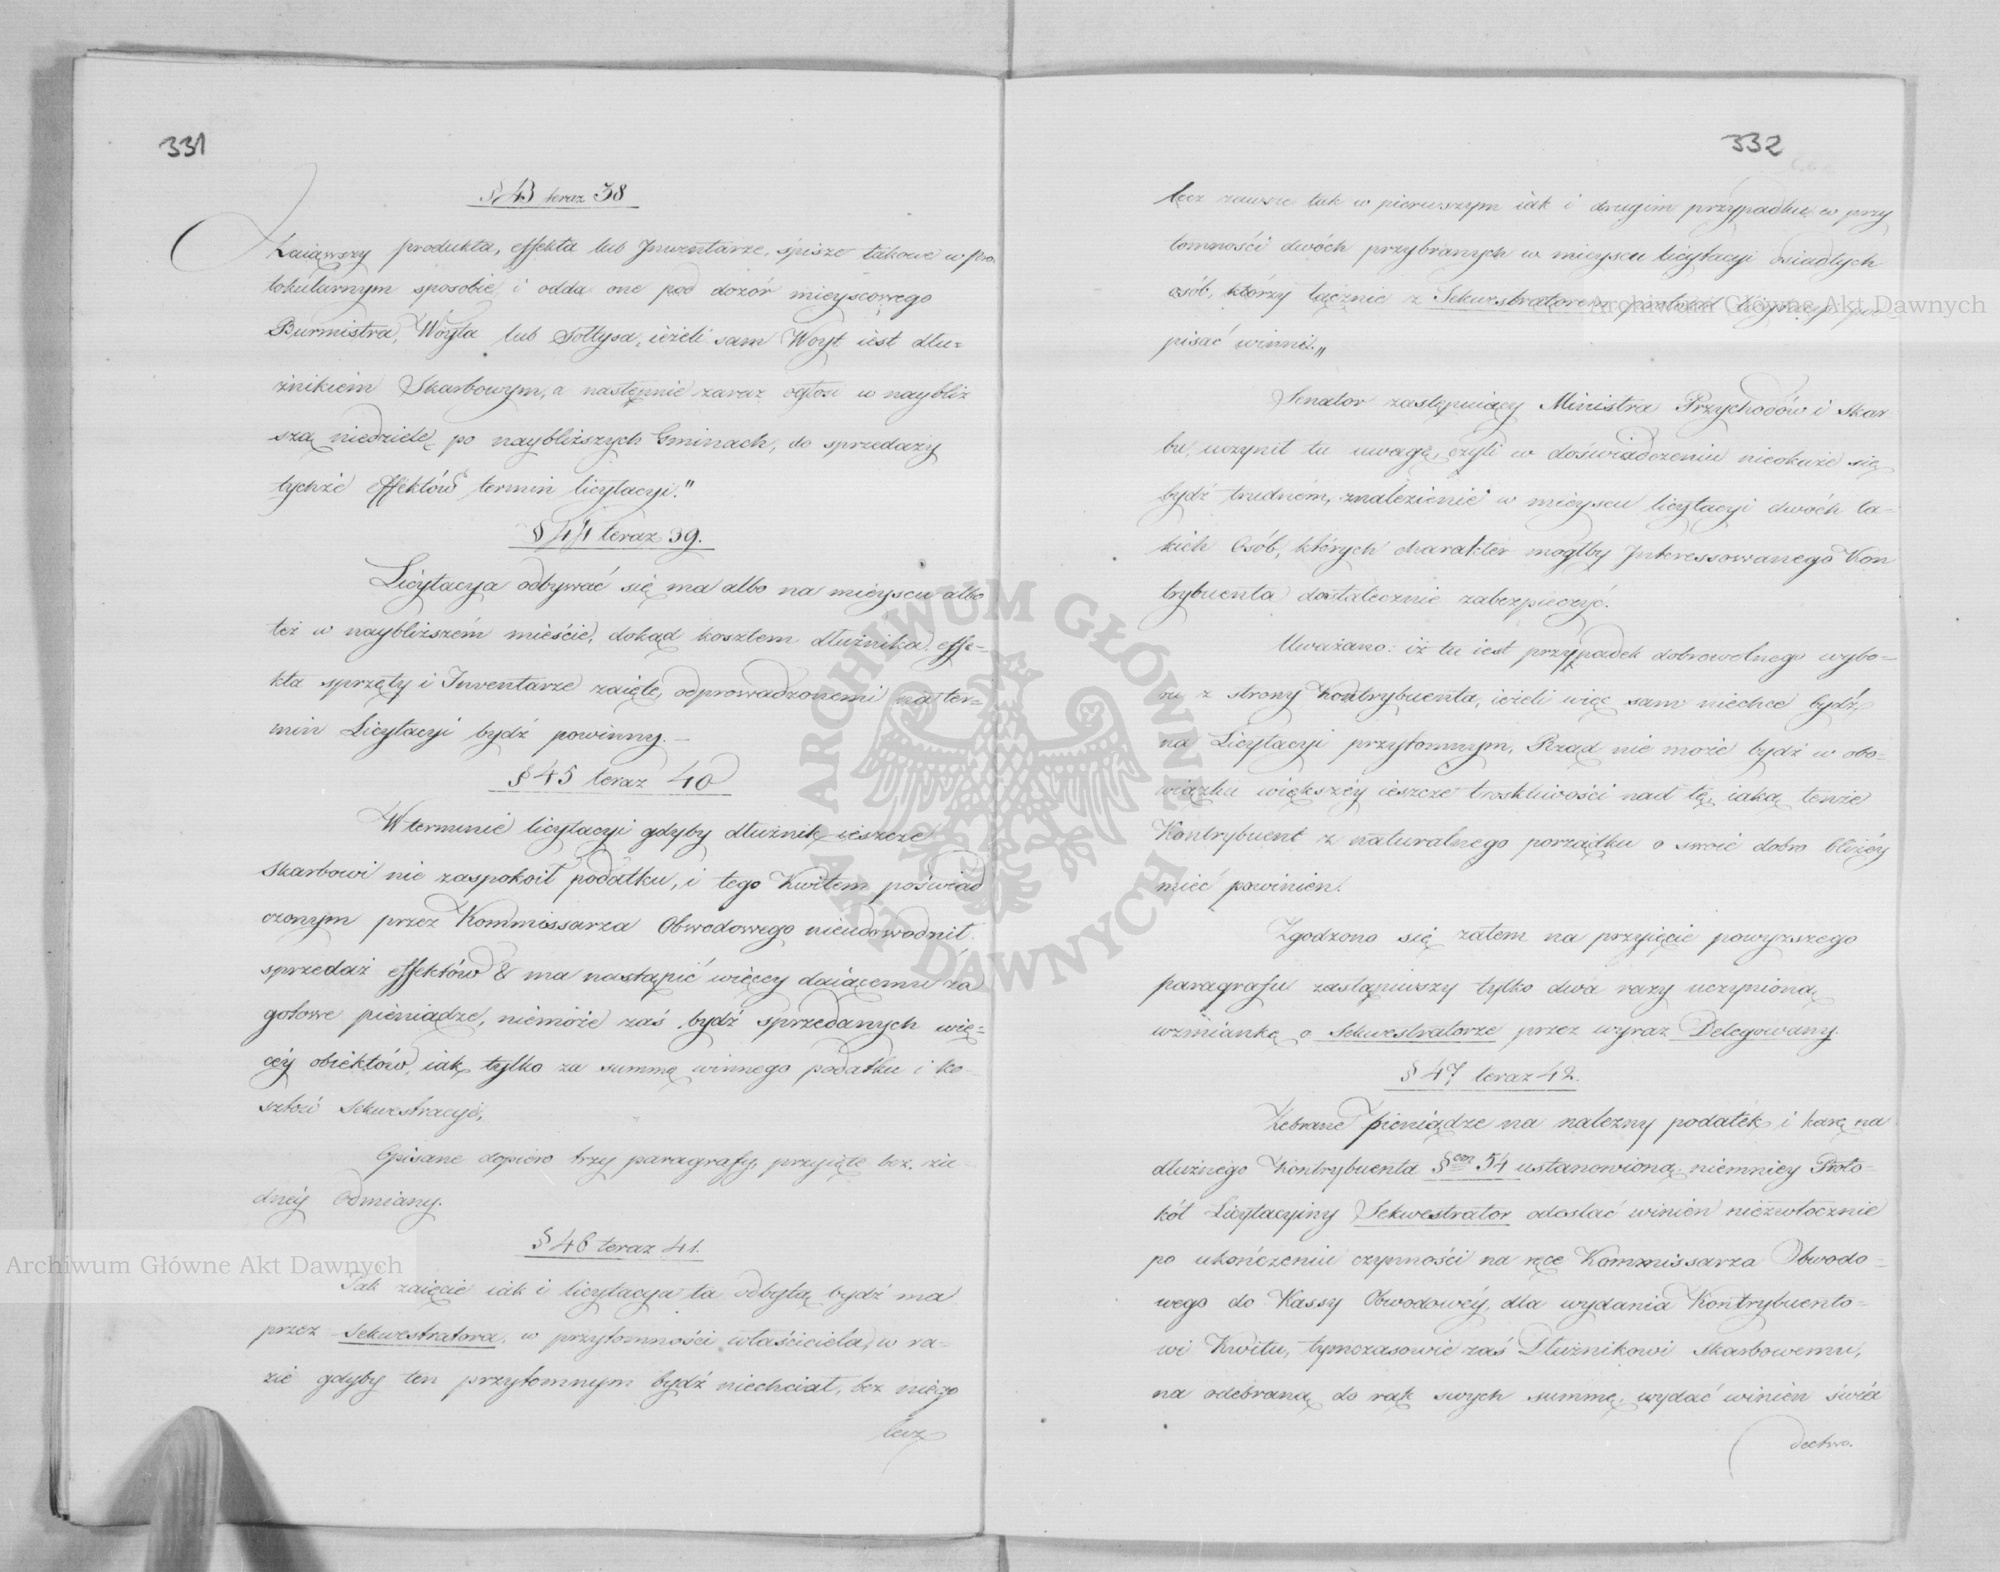 331
§ 43 teraz 38
Zaiąwszy produkta, effekta lub Inwentarze, spisze takowe w pro
tokularnym sposobie i odda one pod dozór mieyscowego
Burmistra, Woyta lub Sołtysa, ieżeli sam Woyt iest dłu=
żnikiem Skarbowym, a następnie zaraz ogłosi w naybliż
szą niedzielę po naybliższych Gminach, do sprzedaży
tychże effektów termin licytacyi."
§ 44 teraz 39.
Licytacya odbywać się ma albo na mieyscu albo
też w naybliższém mieście, dokąd kosztem dłużnika effe=
kta sprzęty i Inwentarze zaięte, odprowadzonemi na ter=
min Licytacyi bydź powinny. —
§ 45 teraz 40
W terminie licytacyi gdyby dłużnik ieszcze
skarbowi nie zaspokoił podatku, i tego Kwitem poświad
czonym przez Kommissarza Obwodowego nieudowodnił
sprzedaż effektów & ma nastąpić więcey daiącemu za
gotowe pieniądze, niemoże zaś bydź sprzedanych wię=
céy obiektów, iak tylko za summę winnego podatku i ko=
sztów Sekwestracyi,
Opisane dopiero trzy paragrafy, przyięte bez ża=
dnéy Odmiany.
§ 46 teraz 41.
Tak zaięcie iak i licytacya ta odbytą bydź ma
przez Sekwestratora, w przytomności właściciela, w ra=
zie gdyby ten przytomnym bydź niechciał, bez niego
lecz
332
lecz zawsze tak w pierwszym iak i drugim przypadku w przy
tomności dwóch przybranych w mieyscu licytacyi osiadłych
osób, którzy łącznie z Sekwestratorem protokół licytacyi pod
pisać winni.„
Senator zastępuiący Ministra Przychodów i Skar=
bu, uczynił tu uwagę, czyli w doświadczeniu nieokaże się
bydź trudném, znalezienie w mieyscu licytacyi dwóch ta=
kich Osób, których charakter mogłby Interessowanego Kon
trybuenta dostatecznie zabezpieczyć.
Uważano: iż tu iest przypadek dobrowolnego wybo=
ru z strony Kontrybuenta, ieżeli więc sam niechce bydź
na Licytacyi przytomnym, Rząd nie może bydź w obo=
wiązku większéy ieszcze troskliwości nad tę, iaką tenże
Kontrybuent z naturalnego porządku o swoie dobro bliżéy
mieć powinien.
Zgodzono się zatem na przyięcie powyższego
paragrafu zastąpiwszy tylko dwa razy uczynioną
wzmiankę o Sekwestratorze przez wyraz Delegowany.
§ 47 teraz 42.
Zebrane pieniądze na należny podatek i karę na
dłużnego Kontrybuenta §em 54 ustanowioną niemniey Proto=
kół Licytacyiny Sekwestrator odesłać winien niezwłocznie
po ukończeniu czynności na ręce Kommissarza Obwodo=
wego do Kassy Obwodowéy, dla wydania Kontrybuento=
wi Kwitu, tymczasowie zaś Dłużnikowi Skarbowemu,
na odebraną do rąk swych summę, wydać winien świa
dectwo.
Archiwum Główne Akt Dawnych
Archiwum Główne Akt Dawnych
ARCHIWUM GŁÓWNE AKT DAWNYCH